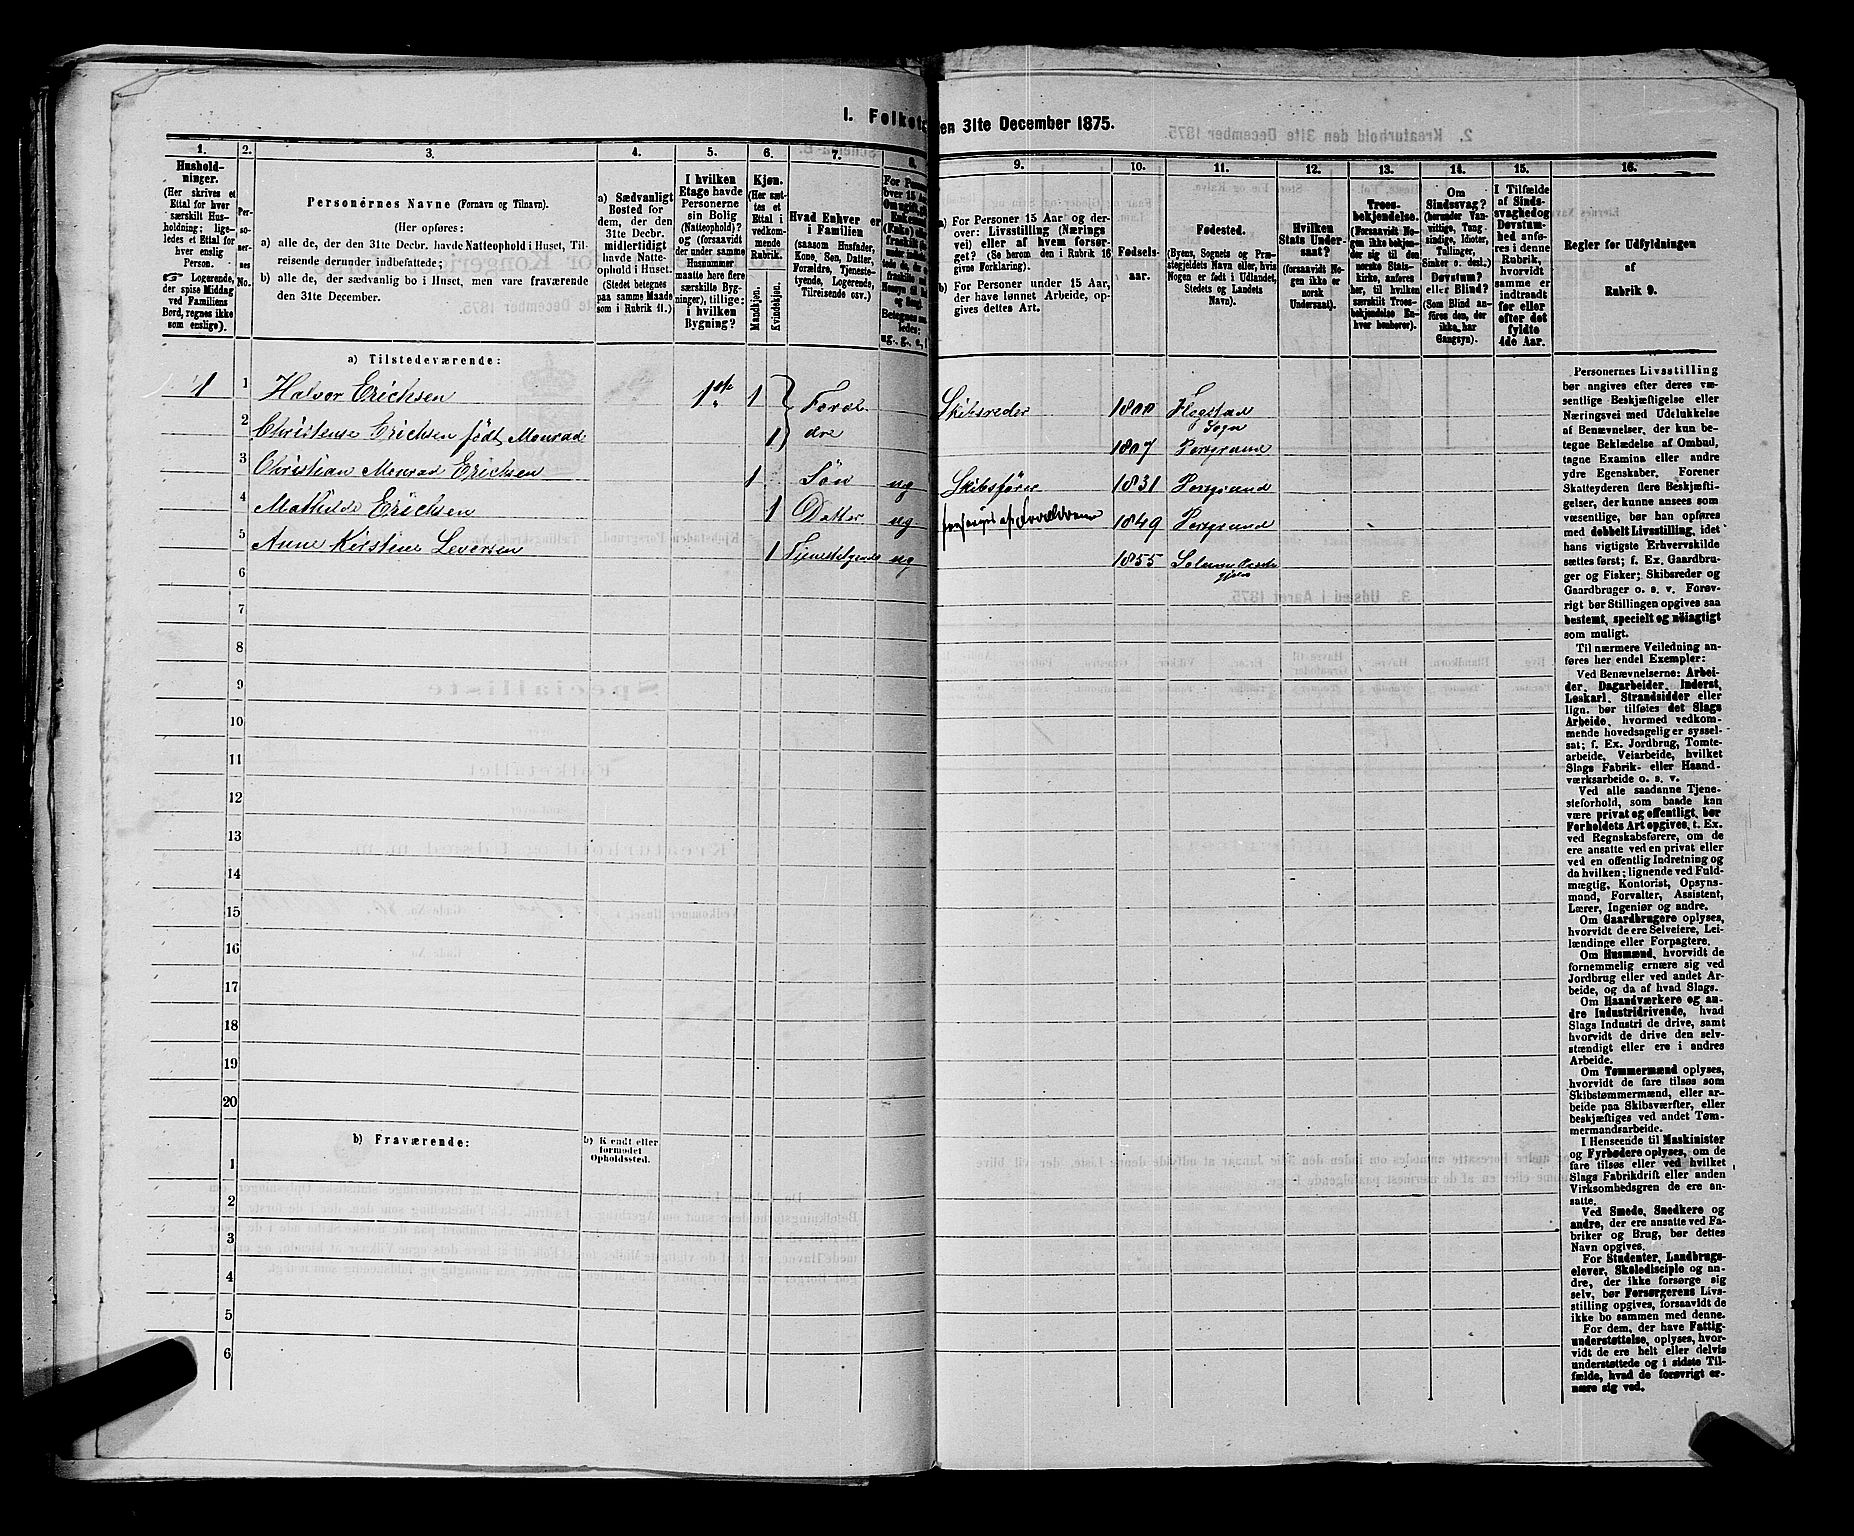 I. Folket
en 31te December 1875.
1.
2.
3.
4.
5.
6.
7.
8.
9.
10.
11.
12.
13.
14.
15.
16.
Hushold-
ninger.
(Her skrives et
Ettal for hver
særskilt Hus-
holdning; lige-
ledes et Ettal for
hver enslig
Person.
☞ Logerende,
der spise Middag
ved Familiens
Bord, regnes ikke
som enslige).
Per-
soner-
nes
No.
Personernes Navne (Fornavn og Tilnavn).
(Her opføres:
a) alle de, der den 31te Decbr. havde Natteophold i Huset, Til-
reisende derunder indbefattede;
b) alle de, der sædvanlig bo i Huset, men vare fraværende
den 31te December.
a) Sædvanligt
Bosted for
dem, der den
31te Decbr.
midlertidigt
havde Natte-
ophold i Huset.
(Stedet betegnes
paa samme Maade
som i Rubrik 11.)
I hvilken
Etage havde
Personerne
sin Bolig
(Natteophold)?
og (forsaavidt
der under samme
Husnummer
maatte here flere
særskilte Byg-
ninger), tillige:
i hvilken
Bygning?
Kjøn.
(Her sæt-
tes et
Ettal i
vedkom-
mende
Rubrik.
Mandkjøn.
Kvindekjøn.
Hvad Enhver er
i Familien
(saasom Husfader,
Kone, Søn, Datter,
Forældre, Tjeneste-
tyende, Logerende,
Tilreisende osv.)
a) For Personer 15 Aar og der-
over: Livsstilling (Nærings
vei) eller af hvem forsør-
get? (Se herom den i Rubrik 16
givne Forklaring).
b) For Personer under 15 Aar,
der have lønnet Arbeide, op-
gives dettes Art.
Fødsels-
aar.
Fødested.
(Byens, Sognets og Præ-
stegjeldets Navn eller, hvis
Nogen er født i Udlandet,
Stedets og Landets
Navn).
Hvilken
Stats Under-
saat?
(forsaavidt No-
gen ikke er
norsk
Undersaat).
Troes-
bekjendelse.
(Forsaavidt No-
gen ikke bekjen-
der sig til den
norske Stats-
kirke, anføres
her, til hvilken
særskilt Troes-
bekjendelse En-
hver henhører).
Om
Sindssvag?
(herunder Van-
vittige, Tung-
sindige, Idioter,
Tullinger,
Sinker o. desl.)
Døvstum?
eller Blind?
(Som Blind an-
føres den, der
ikke har
Gangsyn).
I Tilfælde
af Sinds-
svaghed og
Døvstum-
hed anfø-
res i denne
Rubrik,
hvorvidt
samme er
indtraadt
før eller
efter det
fyldte
4de Aar.
Regler for Udfyldningen
af
Rubrik 9.
a) Tilstedeværende:
1 1 Halvor Erichsen 1ste 1 Foræl- Skibsreder 1800 Sogn
2 Christense Erichsen født Monrad 1 dre 1807 Porsgrund
3 Christian Monrad Erichsen 1 Søn ug Skibsfører 1831 Porsgrund
4 Mathilde Erichsen 1 Datter ug forsørges af Forældrene 1849 Porsgrund
5 Anne Kirstine Seversen 1 Tjenestepige ug 1855 Solum
6
7
8
9
10
11
12
13
14
15
16
17
18
19
20
b) Fraværende:
b) Kjendt eller
formodet
Opholdssted.
1
2
3
4
5
6
Personernes Livsstilling
bør angives efter deres væ-
sentlige Beskjæftigelse eller
Næringsvei med Udelukkelse
af Benævnelser, der kun be-
tegne Beklædelse af Ombud,
tagne Examina eller andre
ydre Egenskaber. Forener
Skatteyderen flere Beskjæfti-
gelser, der kunne ansees som
væsentlige, bør han opføres
med dobbelt Livsstilling, idet
hans vigtigste Erhvervskilde
sættes først; f. Ex. Gaardbru-
ger og Fisker; Skibsreder og
Gaardbruger o. s. v. Forøv-
rigt bør Stillingen opgives saa
bestemt, specielt og nøiagtigt
som muligt.
Til nærmere Veiledning an-
føres her endel Exempler:
Ved Benævnelserne: Arbei-
der, Dagarbeider, Inderst,
Løskarl, Strandsidder eller
lign. bør tilføies det Slags
Arbeide, hvormed vedkom-
mende hovedsagelig er syssel-
sat; f. Ex. Jordbrug, Tomte-
arbeide, Veiarbeide, hvilket
Slags Fabrik- eller Haand-
værksarbeide o. s. v.
Ved alle saadanne Tjene-
steforhold, som baade kan
være privat og offentligt, bør
Forholdets Art opgives, t. Ex.
ved Regnskabsførere, om de
ere ansatte ved en privat eller
ved en offentlig Indretning og
da hvilken; lignende ved Fuld-
mægtig, Kontorist, Opsyns-
mand, Forvalter, Assistent,
Lærer, Ingeniør og andre.
Om Gaardbrugere oplyses,
hvorvidt de ere Selveiere, Lei-
lændinge eller Forpagtere.
Om Husmænd, hvorvidt de
fornemmelig ernære sig ved
Jordbrug eller ved andet Ar-
beide, og da af hvad Slags.
Om Haandværkere og an-
dre Industridrivende, hvad
Slags Industri de drive, samt
hvorvidt de drive den selv-
stændigt eller ere i andres
Arbeide.
Om Tømmermænd oplyses,
hvorvidt de fare tilsøs som
Skibstømmermænd, eller ar-
beide paa Skibsværfter, eller
beskjæftiges ved andet Tøm-
mermandsarbeide.
I Henseende til Maskinister
og Fyrbødere oplyses, om de
fare tilsøs eller ved hvilket
Slags Fabrikdrift eller anden
Virksomhedsgren de ere an-
satte.
Ved Smede, Snedkere og
andre, der ere ansatte ved Fa-
briker og Brug, bør dettes
Navn opgives.
For Studenter, Landbrugs-
elever, Skoledisciple og an-
dre, der ikke forsørge sig
selv, bør Forsørgerens Livs-
stilling opgives, forsaavidt de
ikke bo sammen med denne.
For dem, der have Fattig-
understøttelse, oplyses, hvor-
vidt de ere helt eller delvis
understøttede og i sidste Til-
fælde, hvad de forøvrigt er-
nære sig ved.